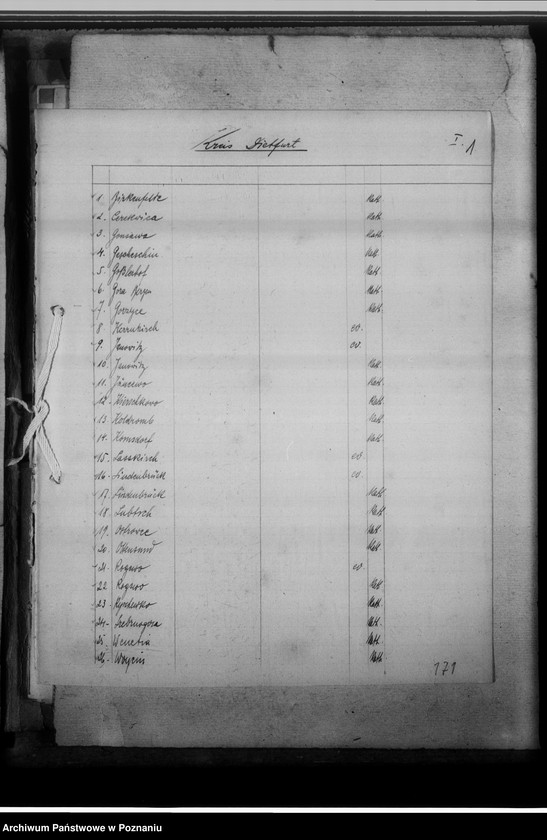 Kreis Dietfurt
I. 1
1. Birkenfelde Kath.
2. Cerekwica Kath.
3. Gonsawa Kath.
4. Gescheschin Kath.
5. Kath.
6. Gora Kath.
7. Gorzyce Kath.
8. Herrnkirch ev.
9. Janowitz ev.
10. Janowitz Kath.
11. Juncewo Kath.
12. Kath.
13. Koldromb Kath.
14. Komsdorf Kath.
15. Lasskirch ev.
16. Lindenbrück ev.
17. Lindenbrück Kath.
18. Lubtsch Kath.
19. Ostrovce Kath.
20. Kath.
21. Rogowo ev.
22. Rogowo Kath.
23. Ryschewko Kath.
24. Srebrnagora Kath.
25. Wenetia Kath.
26. Woycin Kath.
171
Archiwum Państwowe w Poznaniu